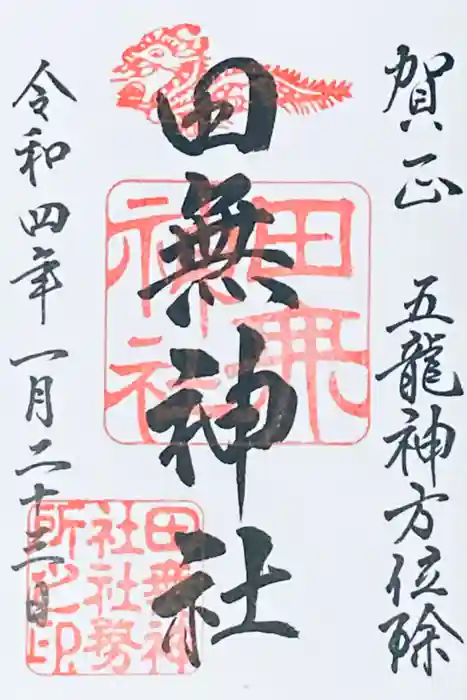 賀正 五龍神方位除
田無神社
令和四年一月二十三日
田無神社
田無神社社務所之印